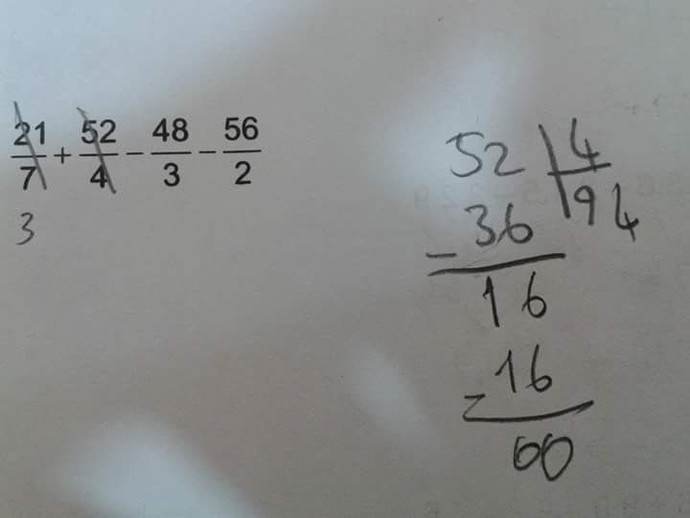 21/7 + 52/4 - 48/3 - 56/2
3
52 | 4
- 36 | 94
16
- 16
00